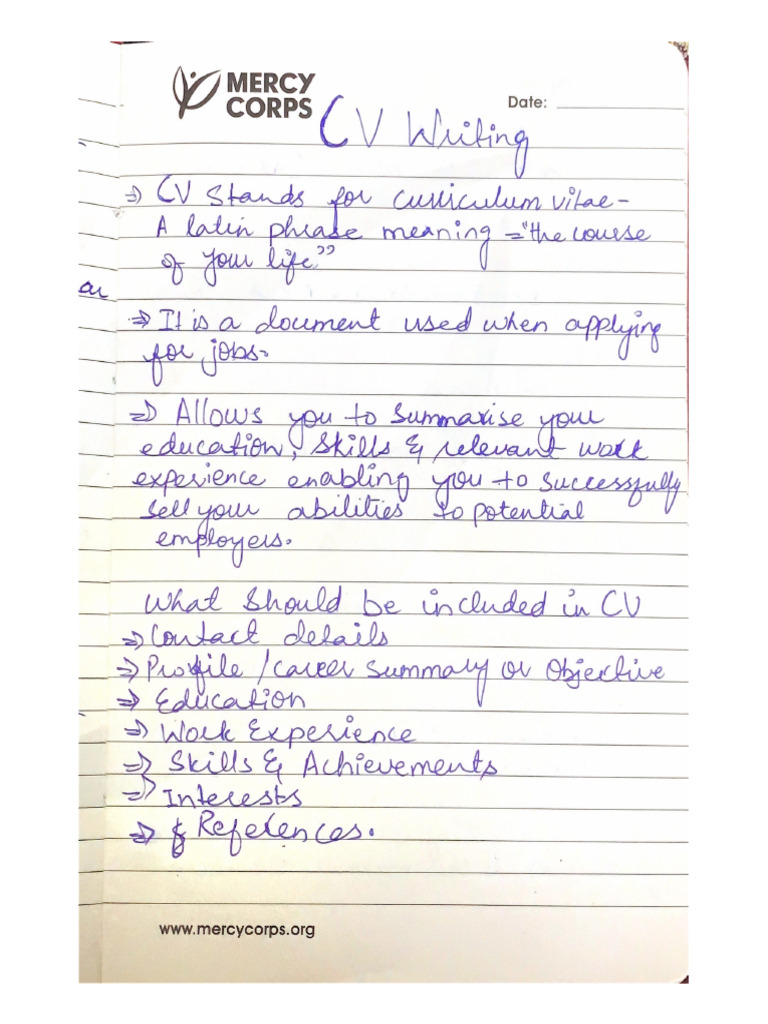 MERCY
CORPS
Date:
CV Writing
⇒ CV Stands for curriculum vitae -
A latin phrase meaning = "the course
of your life"
⇒ It is a document used when applying
for jobs.
⇒ Allows you to summarise your
education, skills & relevant work
experience enabling you to successfully
sell your abilities to potential
employers.
What should be included in CV
⇒ Contact details
⇒ Profile / career summary or objective
⇒ Education
⇒ Work Experience
⇒ Skills & Achievements
⇒ Interests
⇒ & References.
www.mercycorps.org